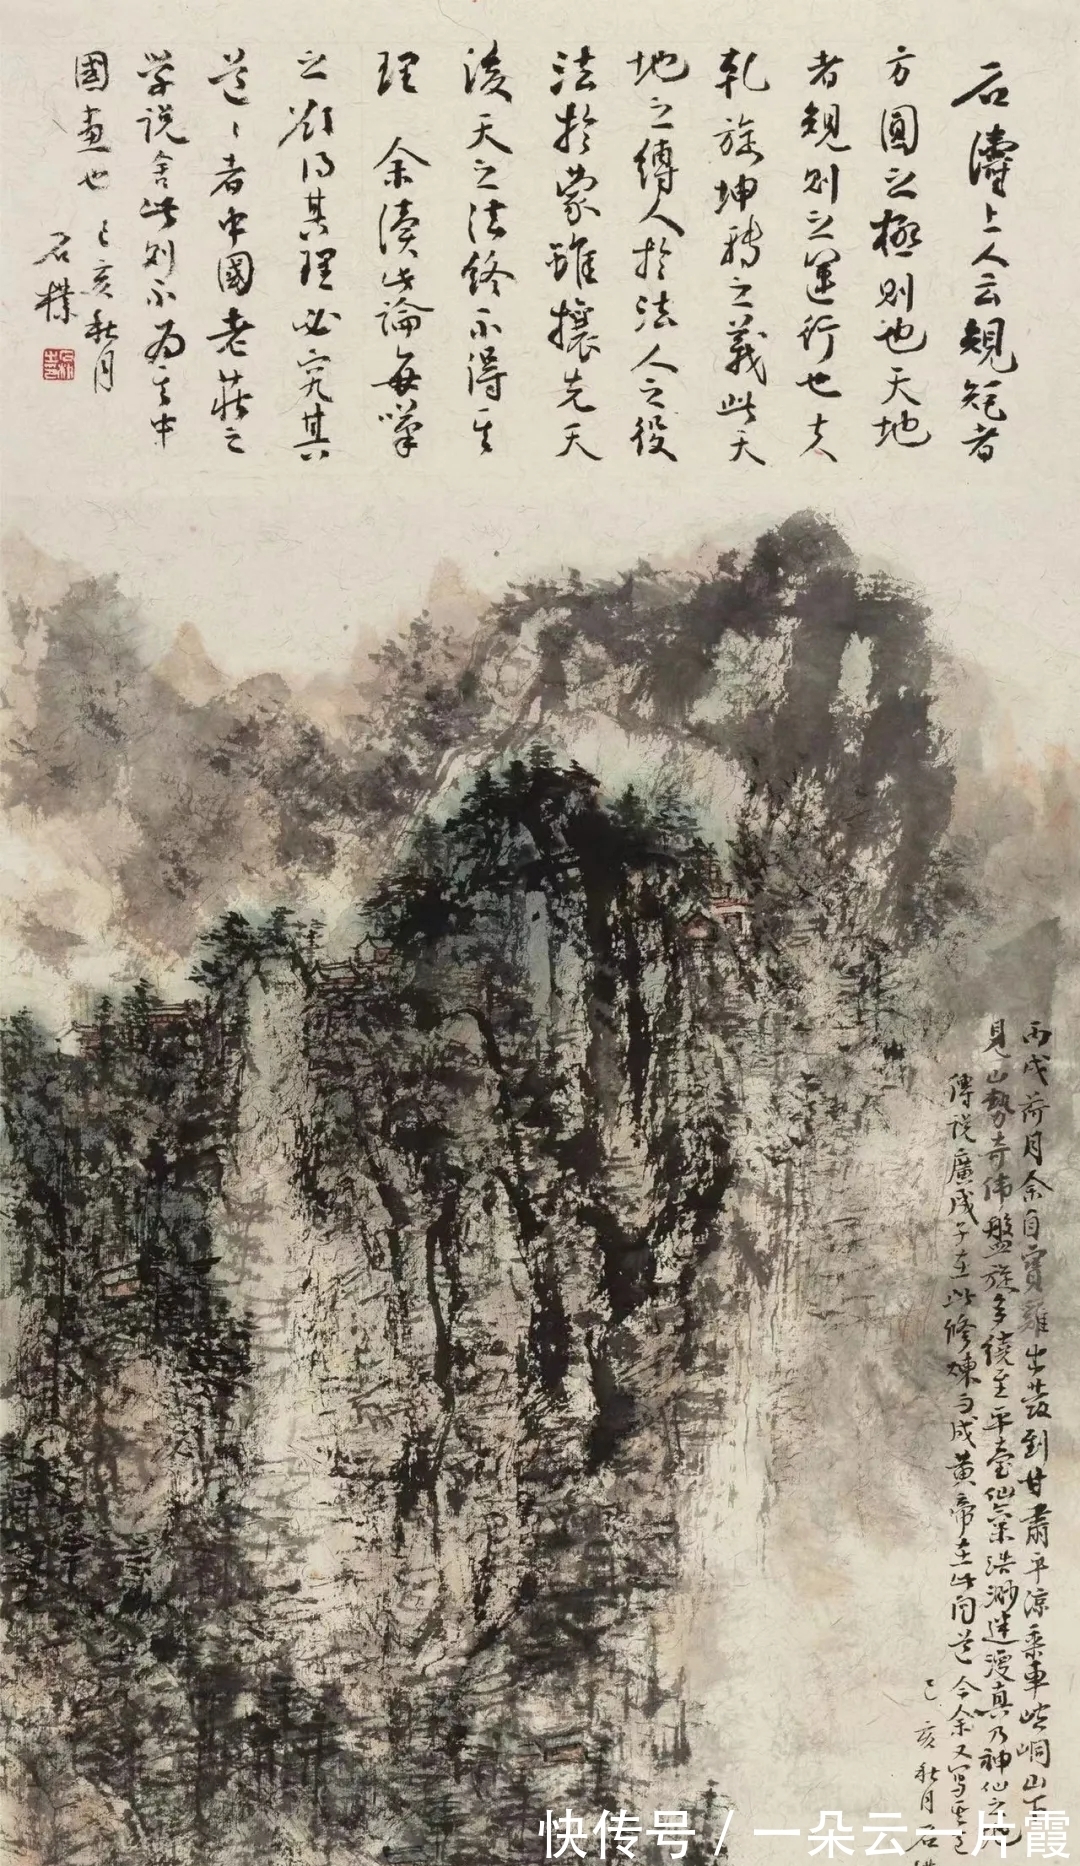 石濤上人云規矩者
方圓之極則也天地
者規則之運行也夫
乾旋坤轉之義此天
地之縛人於法人之役
法於蒙雖攘先天
後天之法終不得其
理 余讀此論每嘆
之欲得其理必究其
道道者中國老莊之
学说舍此則不为其中
國畫也 己亥秋月
石樸
丙戌荷月余自寶雞出發到甘肃平凉乘車崆峒山下
見山勢奇伟盤旋多繞至平臺仙氣浩渺迷漫真乃神仙之地
傳说廣成子在此修煉而成黄帝在此问道今余又寫其
己亥秋月石
快传号/一朵云一片霞